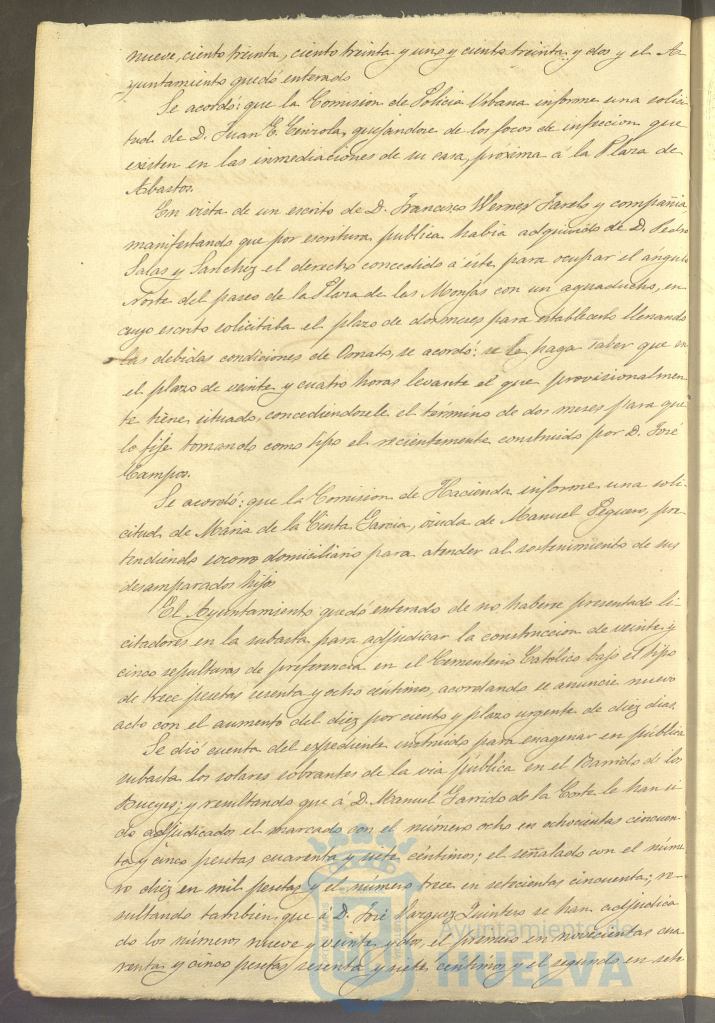 nueve, ciento treinta, ciento treinta y uno y ciento treinta y dos y el A-
yuntamiento quedó enterado
Se acordó: que la Comision de Policia Urbana informe una solici
tud de D. Juan E. quejandose de los focos de infeccion que
existen en las inmediaciones de su casa, próxima á la Plaza de
Abastos.
En vista de un escrito de D. Francisco Werner y compañia,
manifestando que por escritura publica habia adquirido de D. Pedro
Salas y Sanchez el derecho concedido á éste para ocupar el ángulo
Norte del paseo de la Plaza de las Monjas con un aguaducho, en
cuyo escrito solicitaba el plazo de dos meses para establecerlo llenando
las debidas condiciones de Ornato, se acordó: se le haga saber que en
el plazo de veinte y cuatro horas levante el que provisionalmen
te tiene situado, concediendosele el término de dos meses para que
lo fije tomando como tipo el recientemente construido por D. José
Campos.
Se acordó: que la Comision de Hacienda informe una soli-
citud de Maria de la Cinta Garcia, viuda de Manuel Peguero, pre-
tendiendo socorro domiciliario para atender al sostenimiento de sus
desamparados hijos
El Ayuntamiento quedo enterado de no haberse presentado li-
citadores en la subasta para adjudicar la construccion de veinte y
cinco sepulturas de preferencia en el Cementerio Catolico bajo el tipo
de trece pesetas sesenta y ocho céntimos, acordando se anuncie nuevo
acto con el aumento del diez por ciento y plazo urgente de diez dias.
Se dió cuenta del expediente instruido para enagenar en pública
subasta los solares sobrantes de la via publica en el Barrido de los
Bueyes; y resultando que á D. Manuel Garrido de la Corte le han si-
do adjudicados el marcado con el número ocho en ochocientas cincuen-
ta y cinco pesetas cuarenta y siete céntimos; el señalado con el núme-
ro diez en mil pesetas y el número trece en setecientas cincuenta; re-
sultando tambien que á D. José Vazquez Quintero se han adjudica
do los números nueve y veinte y dos, el primero en novecientas cua
renta y cinco pesetas sesenta y siete céntimos y el segundo en sete
Ayuntamiento de
HUELVA